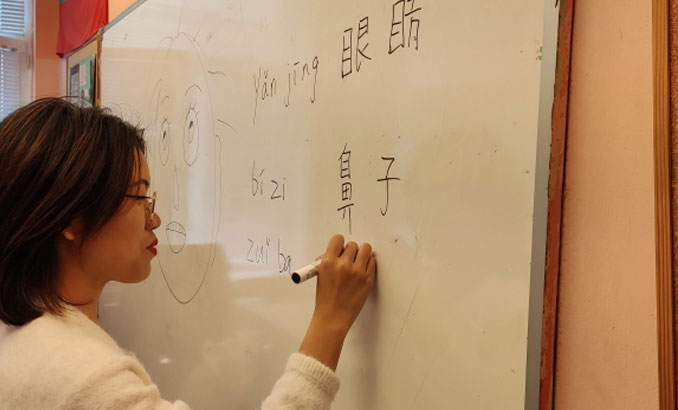 yǎn jīng 眼睛
bí zi 鼻子
zuǐ ba